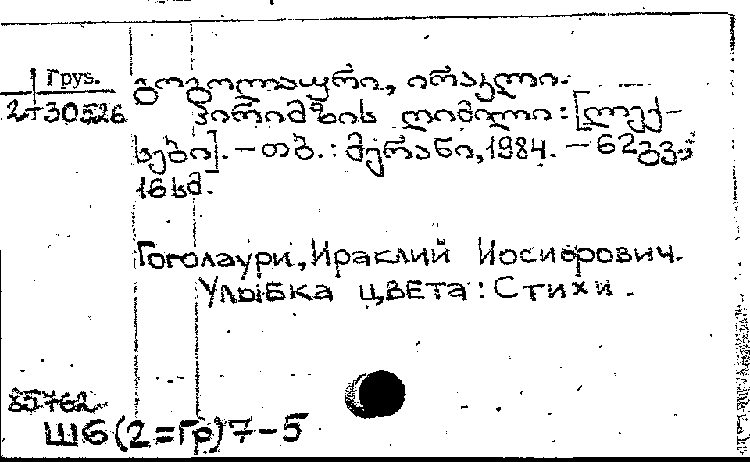 Груз.
2-30526
გოგოლაური, ირაკლი.
პირიმზის ღიმილი: [ლექ-
სები]. – თბ.: მერანი, 1984. – 62გვ.;
16 სმ.
Гоголаури, Ираклий Иосифович.
Улыбка цвета: Стихи.
85762
Шб(2=Гр)7-5